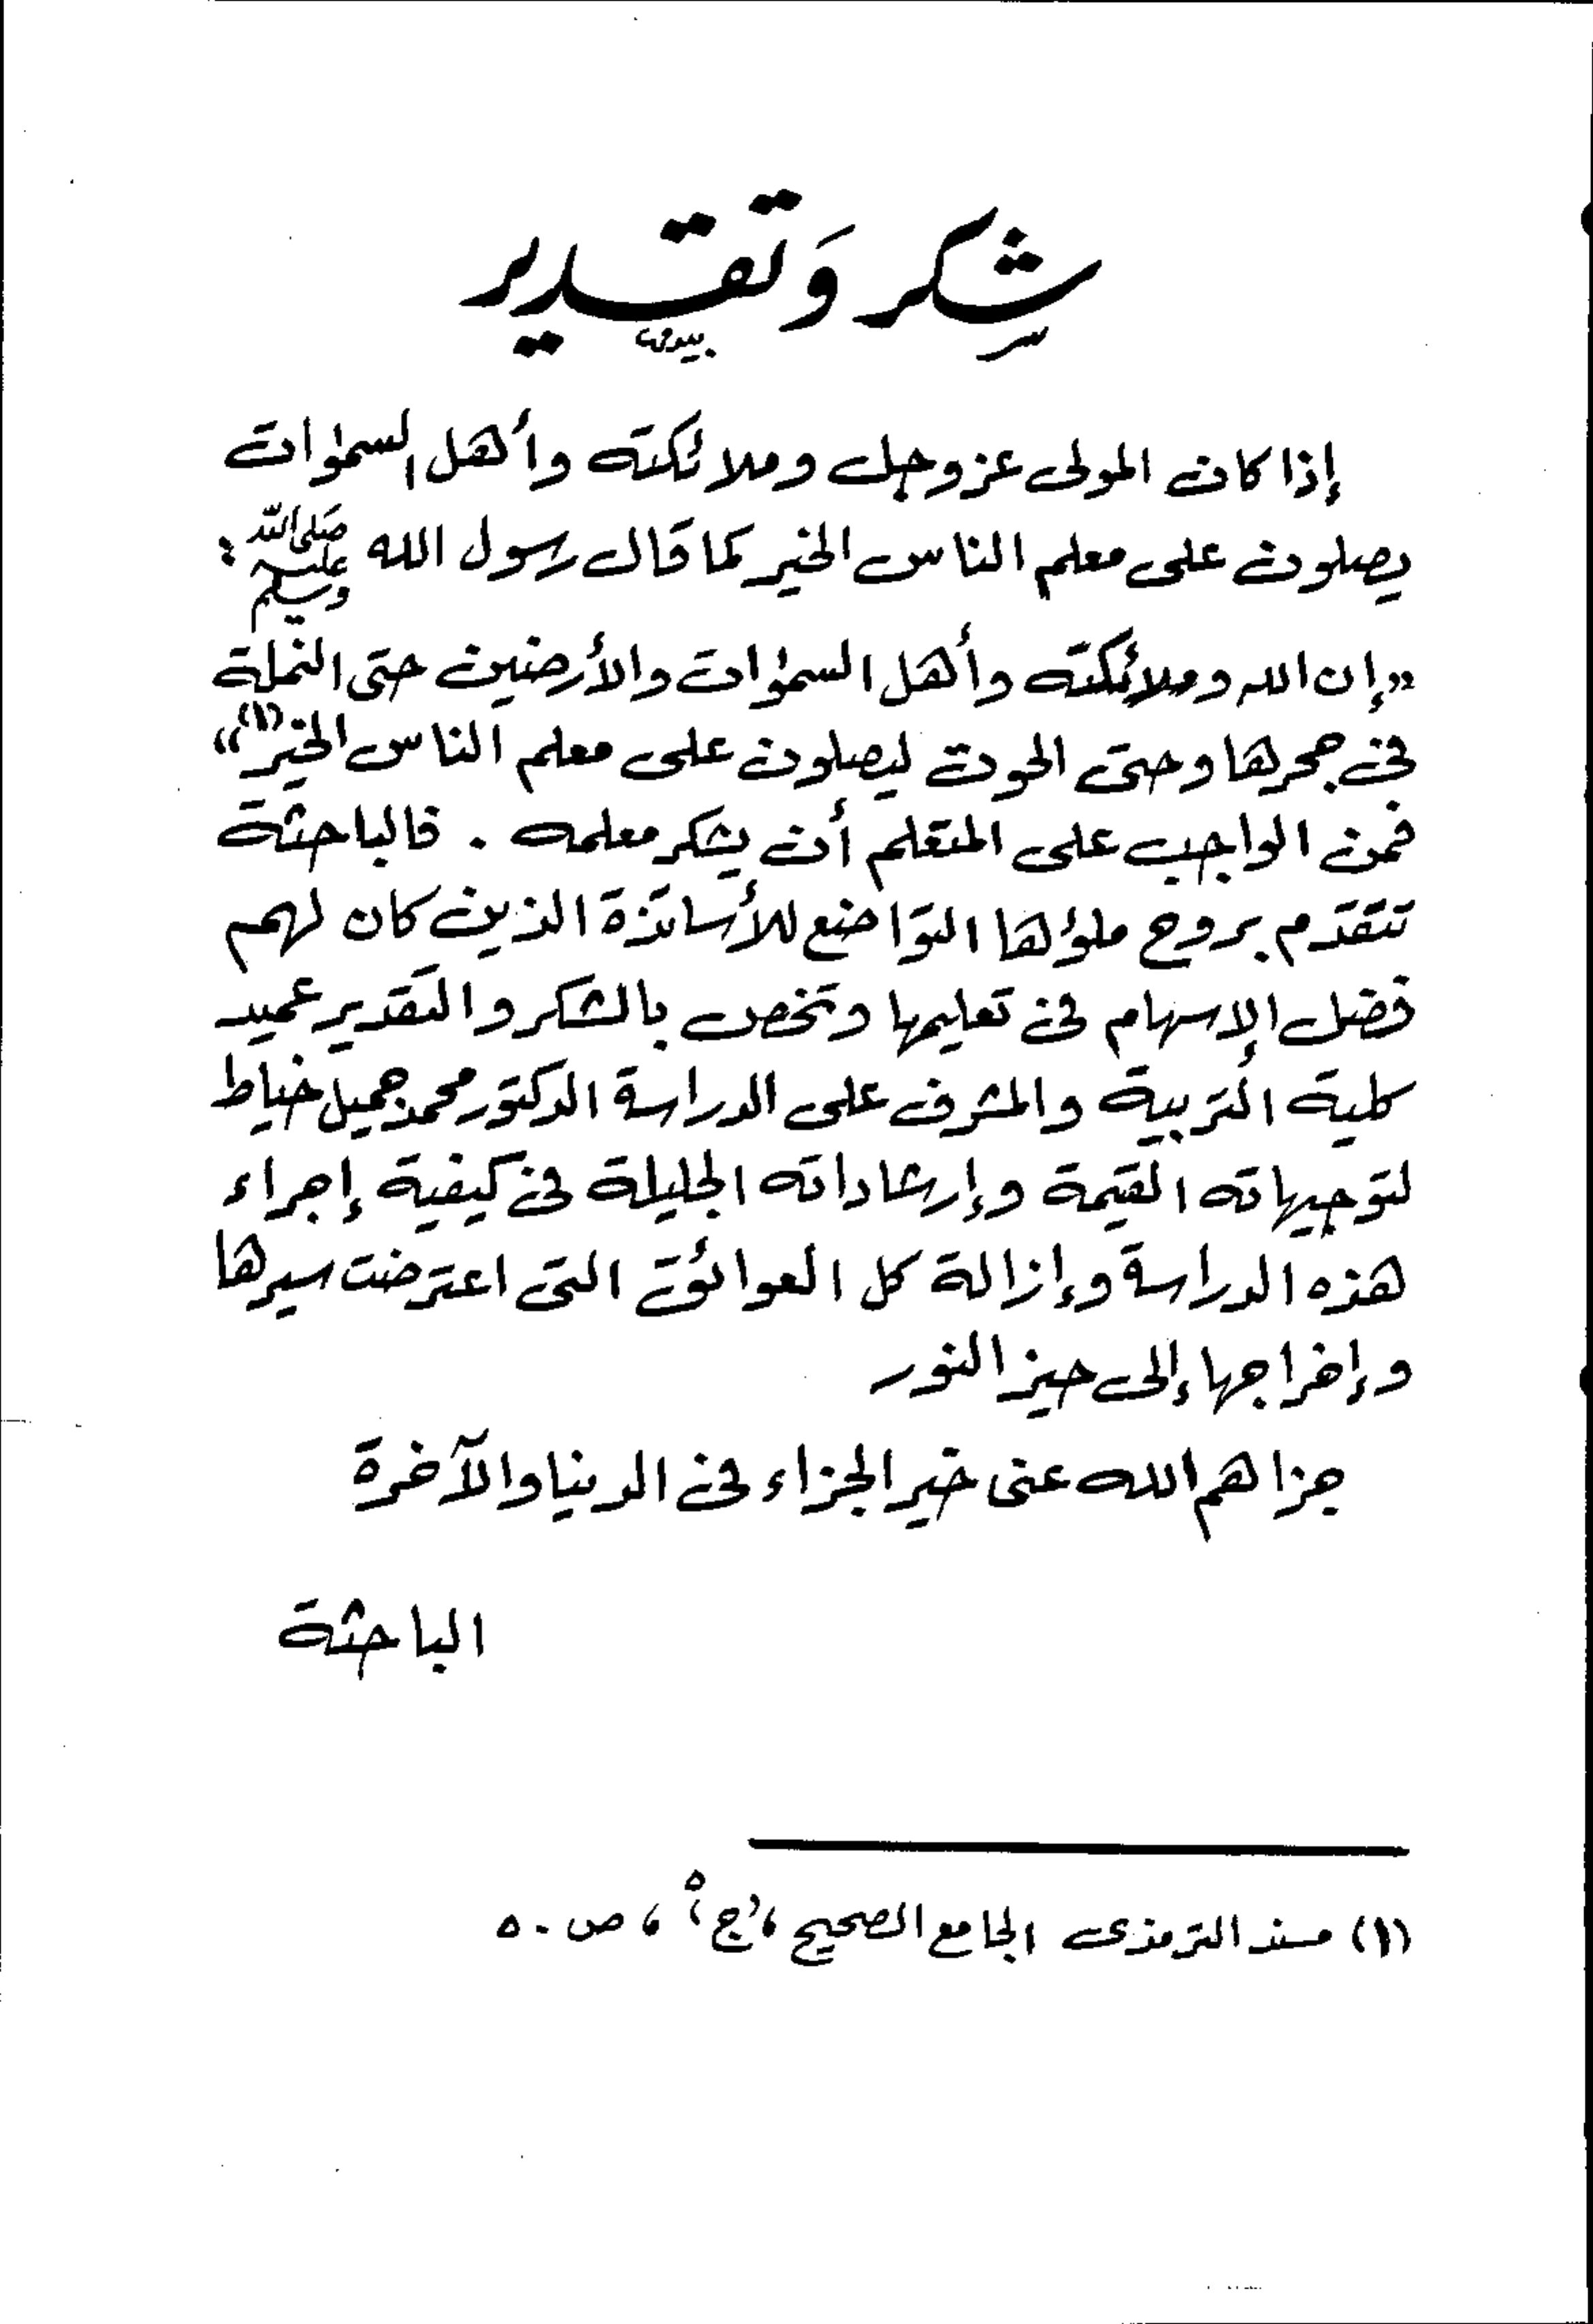 شكر وَتقدير
إذا كان المولى عز وجل وملائكته وأهل السموات
يصلون على معلم الناس الخير كما قال رسول الله صلى الله عليه وسلم :
«إن الله وملائكته وأهل السموات والأرضين حتى النملة
في جحرها وحتى الحوت ليصلون على معلم الناس الخير(١)»
فمن الواجب على المتعلم أن يشكر معلمه . فالباحثة
تتقدم بروح ملؤها التواضع للأساتذة الذين كان لهم
فضل الإسهام في تعليمها وتخص بالشكر والتقدير عميد
كلية التربية والمشرف على الدراسة الدكتور محمد جميل خياط
لتوجيهاته القيمة وإرشاداته الجليلة في كيفية إجراء
هذه الدراسة وإزالة كل العوائق التي اعترضت سيرها
وإخراجها إلى حيز النور
جزاهم الله عني خير الجزاء في الدنيا والآخرة
الباحثة
(١) مسند الترمذي الجامع الصحيح ، ج ٥ ، ص ٥٠